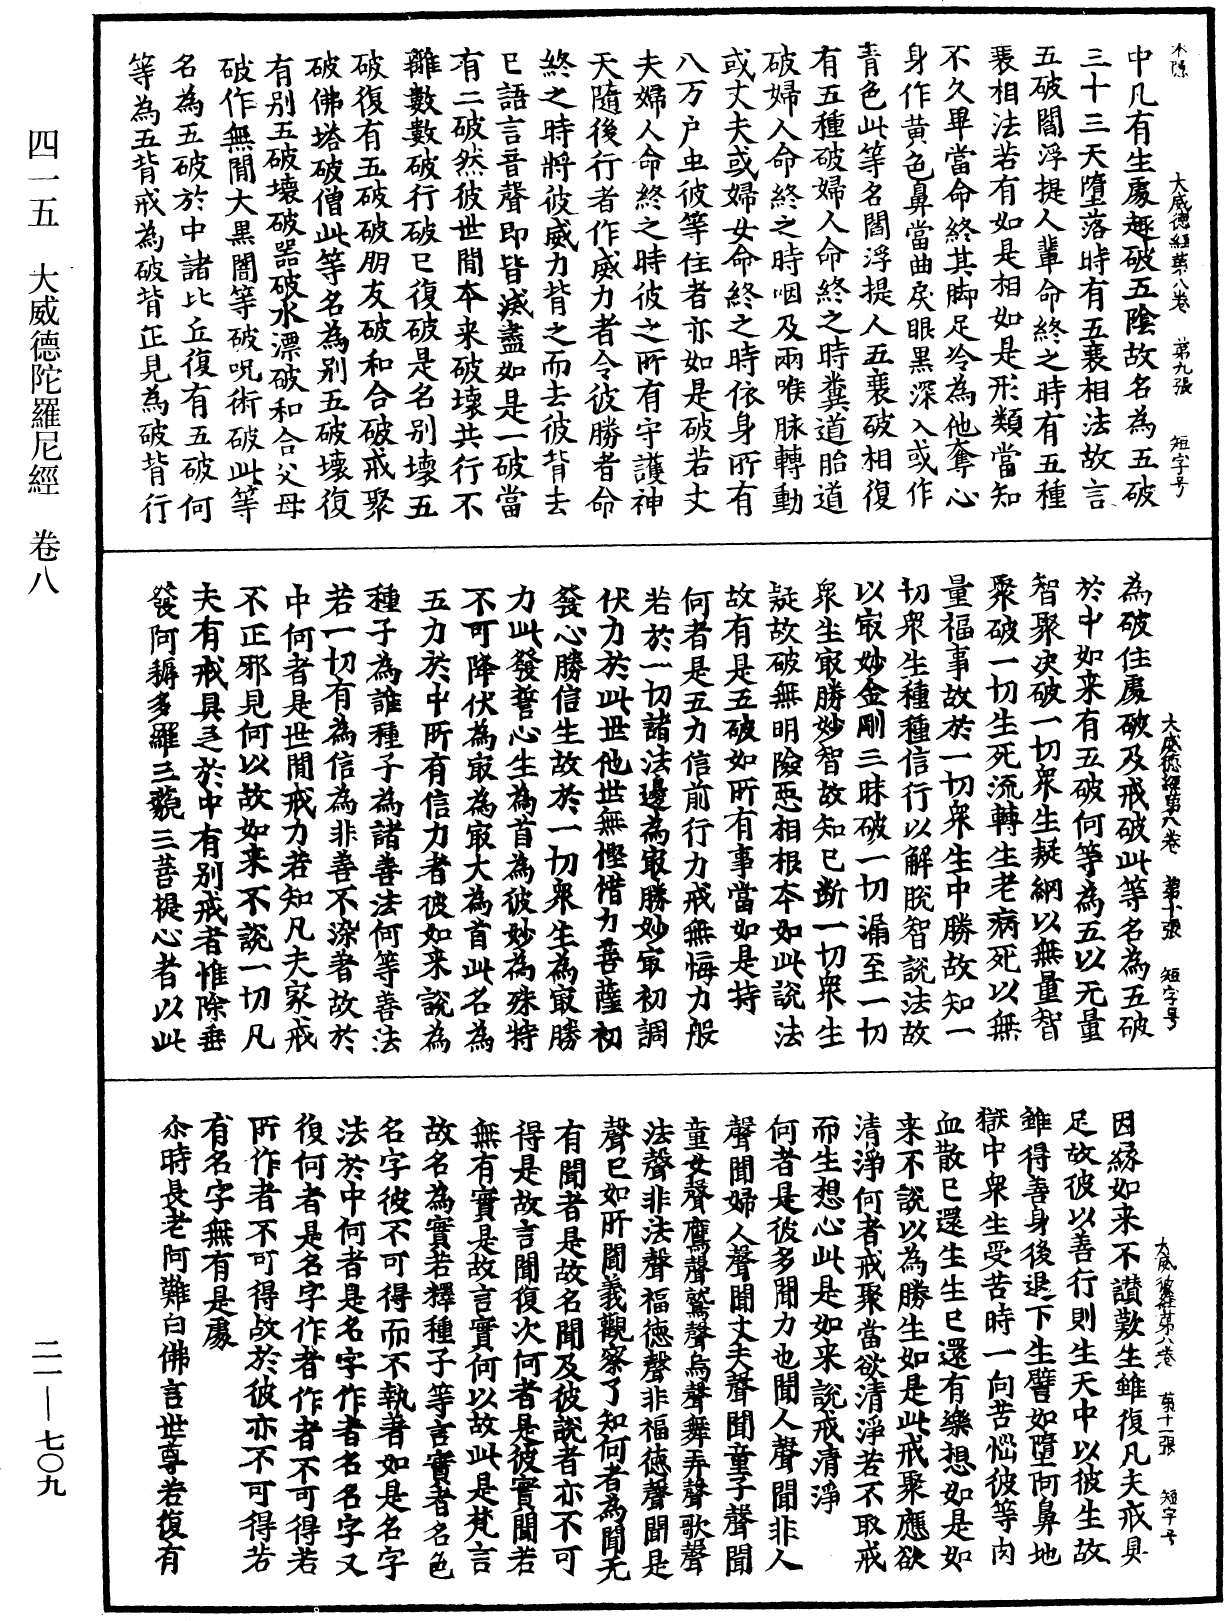 大威德經第八卷　第九張　短字号
中凡有生處趣破五陰故名為五破
三十三天墮落時有五衰相法故言
五破閻浮提人輩命終之時有五種
衰相法若有如是相如是形類當知
不久畢當命終其脚足冷為他奪心
身作黄色鼻當曲戾眼黑深入或作
青色此等名閻浮提人五衰破相復
有五種破婦人命終之時糞道胎道
破婦人命終之時咽及兩喉脉轉動
或丈夫或婦女命終之時依身所有
八万户虫彼等住者亦如是破若丈
夫婦人命終之時彼之所有守護神
天隨後行者作威力者令彼勝者命
終之時將彼威力背之而去彼背去
已語言音聲即皆滅盡如是一破當
有二破然彼世間本来破壞共行不
離數數破行破已復破是名别壞五
破復有五破破朋友破和合破戒聚
破佛塔破僧此等名為别五破壞復
有别五破壞破器破水漂破和合父母
破作無間大黑闇等破呪術破此等
名為五破於中諸比丘復有五破何
等為五背戒為破背正見為破背行
大威德經第八卷　第十張　短字号
為破住處破及戒破此等名為五破
於中如来有五破何等為五以无量
智聚決破一切衆生疑網以無量智
聚破一切生死流轉生老病死以無
量福事故於一切衆生中勝故知一
切衆生種種信行以解脫智說法故
以㝡妙金剛三昧破一切漏至一切
衆生㝡勝妙智故知已斷一切衆生
疑故破無明險惡相根本如此說法
故有是五破如所有事當如是持
何者是五力信前行力戒無悔力般
若於一切諸法邊為㝡勝妙㝡初調
伏力於此世他世無慳惜力菩薩初
發心勝信生故於一切衆生為㝡勝
力此發誓心生為首為彼妙為殊特
不可降伏為㝡為㝡大為首此名為
五力於中所有信力者彼如来說為
種子為誰種子為諸善法何等善法
若一切有為信為非善不染著故於
中何者是世間戒力若知凡夫家戒
不正邪見何以故如来不說一切凡
夫有戒具足於中有别戒者惟除垂
發阿耨多羅三藐三菩提心者以此
大威德經第八卷　第十一張　短字号
因緣如来不讃歎生雖復凡夫戒具
足故彼以善行則生天中以彼生故
雖得善身後退下生譬如墮阿鼻地
獄中衆生受苦時一向苦惱彼等肉
血散已還生生已還有樂想如是如
来不說以為勝生如是此戒聚應欲
清淨何者戒聚當欲清淨若不取戒
而生想心此是如来說戒清淨
何者是彼多聞力也聞人聲聞非人
聲聞婦人聲聞丈夫聲聞童子聲聞
童女聲鷹聲鷲聲烏聲舞弄聲歌聲
法聲非法聲福徳聲非福徳聲聞是
聲已如所聞義觀察了知何者為聞无
有聞者是故名聞及彼說者亦不可
得是故言聞復次何者是彼實聞若
無有實是故言實何以故此是梵言
故名為實若釋種子等言實者名色
名字彼不可得而不執著如是名字
法於中何者是名字作者名名字又
復何者是名字作者作者不可得若
所作者不可得故於彼亦不可得若
有名字無有是處
尒時長老阿難白佛言世尊若復有
四一五　大威德陀羅尼經　卷八
二一—七〇九